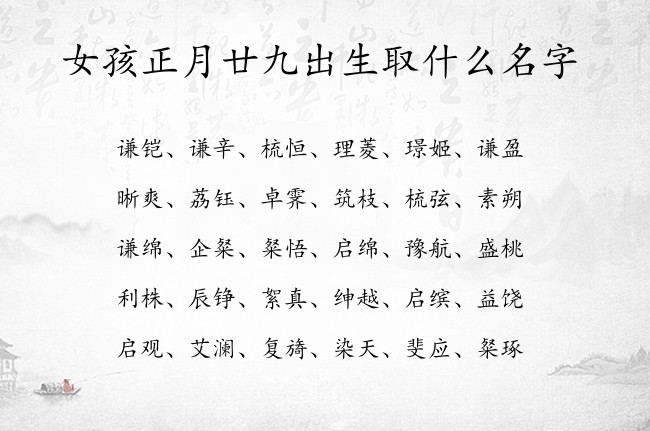 女孩正月廿九出生取什么名字
谦铠、谦辛、梳恒、理菱、璟姬、谦盈
晰爽、荔钰、卓霁、筑枝、梳弦、素朔
谦绵、企粲、粲悟、启绵、豫航、盛桃
利株、辰铮、絮真、绅越、启缤、益饶
启观、艾澜、复旖、染天、斐应、粲琢